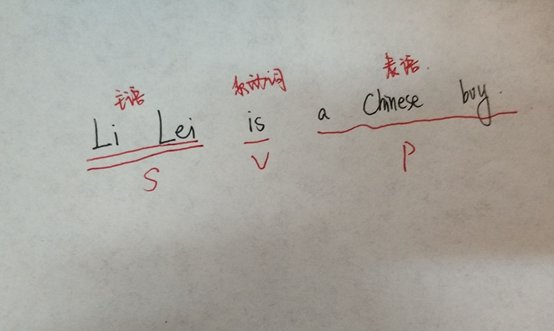 主语 系动词 表语
Li Lei is a Chinese boy.
S V P